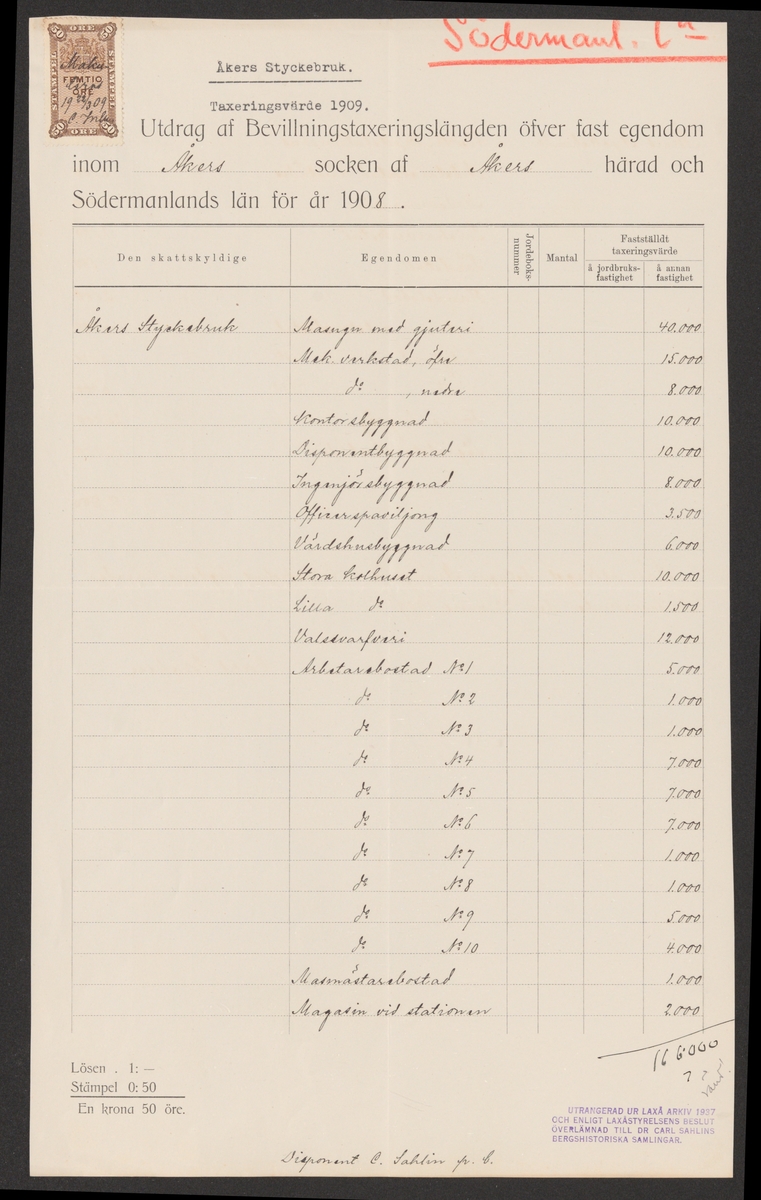 Södermanl. Län
50 ÖRE 50
STÄMPEL STÄMPEL
FEMTIO
ÖRE
50 ÖRE 50
Åkers Styckebruk.
Taxeringsvärde 1909.
Utdrag af Bevillningstaxeringslängden öfver fast egendom
inom Åkers socken af Åkers härad och
Södermanlands län för år 1908.
Den skattskyldige Egendomen Jordeboks-nummer Mantal Fastställdt taxeringsvärde
å jordbruks-fastighet å annan fastighet
Åkers Styckebruk Masugn med gjuteri 40.000
Mek. verkstad, öfre 15.000
do , nedre 8.000
Kontorsbyggnad 10.000
Disponentbyggnad 10.000
Ingenjörsbyggnad 8.000
Officerspaviljong 3.500
Värdshusbyggnad 6.000
Stora kolhuset 10.000
Lilla do 1.500
Valssvarfveri 12.000
Arbetarebostad No 1 5.000
do No 2 1.000
do No 3 1.000
do No 4 7.000
do No 5 7.000
do No 6 7.000
do No 7 1.000
do No 8 1.000
do No 9 5.000
do No 10 4.000
Masmästarebostad 1.000
Magasin vid stationen 2.000
166000
? ?
Lösen . 1: —
Stämpel 0: 50
En krona 50 öre.
UTRANGERAD UR LAXÅ ARKIV 1937
OCH ENLIGT LAXÅSTYRELSENS BESLUT
ÖVERLÄMNAD TILL DR CARL SAHLINS
BERGSHISTORISKA SAMLINGAR.
Disponent C. Sahlin p. b.